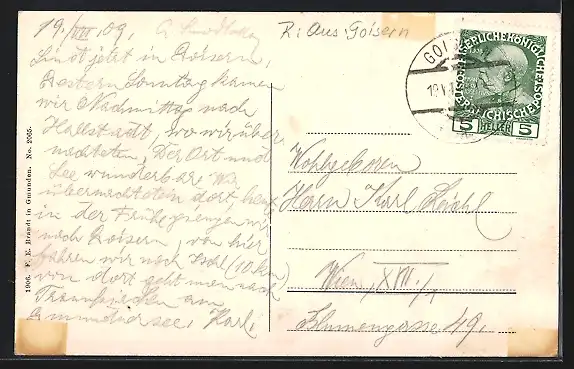 19./VIII 09.
R: Aus: Goisern
Sind jetzt in Goisern,
Gestern Sonntag kamen
wir Nachmittag nach
Hallstadt, wo wir über
nachteten, Der Ort und
See wunderbar. Wir
übernachteten dort, heut
in der Frühe gingen wir
nach Goisern, von hier
fahren wir nach Ischl (10 km)
von dort geht man nach
Traunkirchen am
Gmundnersee, Karl
1906. F. E. Brandt in Gmunden. No. 2055.
GOI
KAISERLICHE KÖNIGLICHE
ÖSTERREICHISCHE
5 HELLER 5
Wohlgeboren
Herrn Karl
Wien, XVII./1
Blumengasse 49.